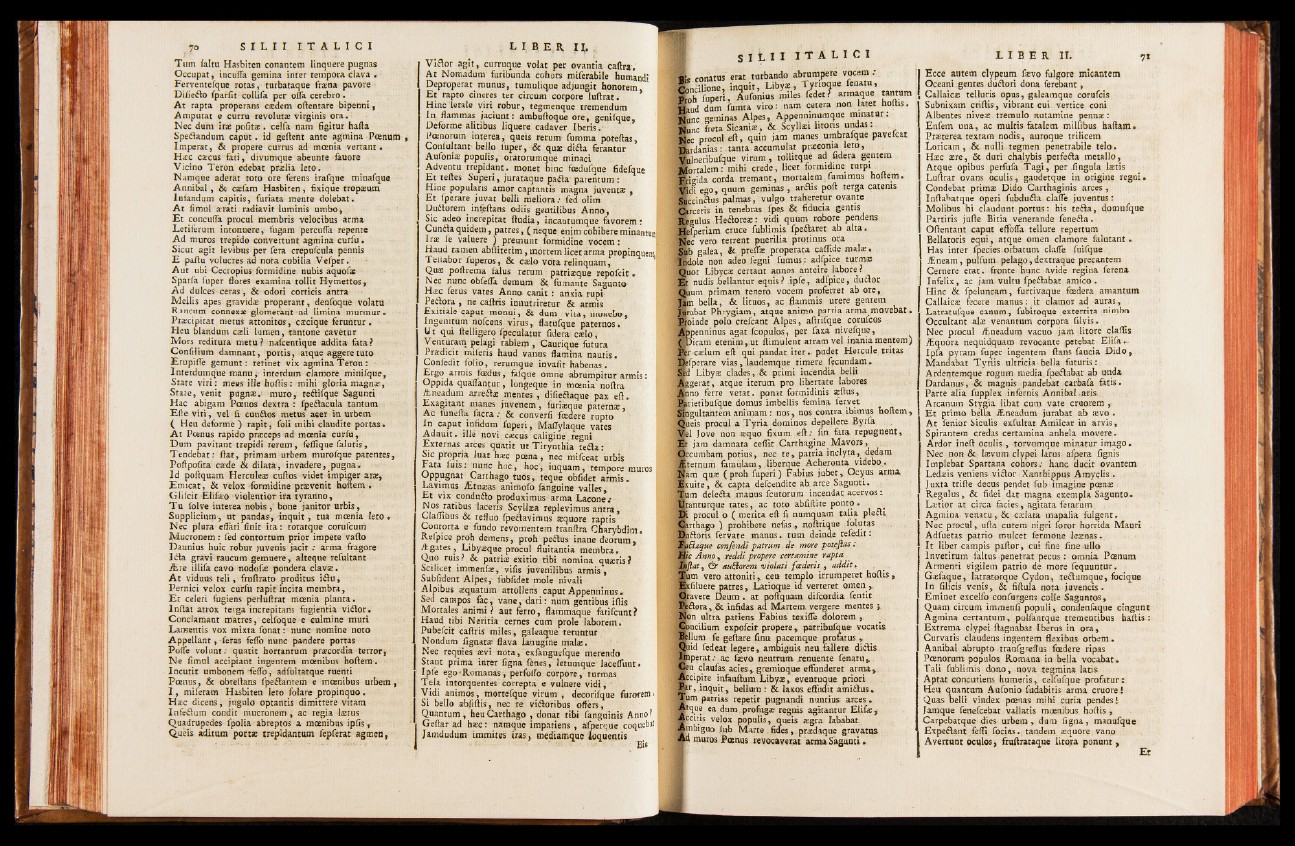 70 SILII ITALICI
Tum saltu Hasbiten conantem linquere pugnas
Occupat, incussa gemina inter tempora clava.
Ferventesque rotas, turbataque fræna pavore
Disiecto sparsit collisa per ossa cerebro.
At rapta properans cædem ostentare bipenni,
Amputat e curru revolutæ virginis ora.
Nec dum iræ positæ. celsa nam figitur hasta
Spectandum caput. id gestent ante agmina Pœnum,
Imperat, & propere currus ad mœnia vertant.
Hæc cæcus fati, divumque abeunte favore
Vicino Teron edebat prælia leto.
Namque aderat toto ore ferens irasque minasque
Annibal, & cæsam Hasbiten, fixique tropæum
Infandum capitis, furiata mente dolebat.
At simul ærati radiavit luminis umbo,
Et concussa procul membris velocibus æma
Letiferum intonuere, fugam percussa repente
Ad muros trepido convertunt agmina cursu.
Sicut agit levibus per sera crepuscula pennis
E pastu volucres ad nota cubilia Vesper.
Aut ubi Cecropius formidine nubis aquosæ
Sparsa super flores examina tollit Hymettos,
Ad dulces ceras, & odori corticis antra
Mellis apes gravidæ properant, densoque volatu
Raucum connexæ glomerant ad limina murmur.
Præcipitat metus attonitos, cæcique feruntur.
Heu blandum cæli lumen, tantone cavetur
Mors reditura metu? nascentique addita fata?
Consilium damnant, portis, atque aggere tuto
Erupisse gemunt: retinet vix agmina Teron:
Interdumque manu, interdum clamore minisque,
State viri: meus ille hostis: mihi gloria magnæ,
State, venit pugnæ. muro, tectisque Sagunti
Hac abigam Pœnos dextra: spectacula tantum
Este viri, vel si cunctos metus acer in urbem
( Heu deforme ) rapit, soli mihi claudite portas.
At Pœnus rapido præceps ad mœnia cursu,
Dum pavitant trepidi rerum, fessique salutis,
Tendebat: stat, primam urbem murosque patentes,
Postposita cæde & dilata, invadere, pugna.
Id postquam Herculeæ custos videt impiger aræ,
Emicat, & velox formidine prævenit hostem.
Gliscit Elisæo violentior ira tyranno,
Tu solve interea nobis, bone janitor urbis,
Supplicium, ut pandas, inquit, tua mœnia leto.
Nec plura effari sinit ira: rotatque coruscum
Mucronem: sed contortum prior impete vasto
Daunius huic robur juvenis jacit: arma fragore
Icta gravi raucum gemuere, alteque resultant
Ære illisa cavo nodosæ pondera clavæ.
At viduus teli, frustrato proditus ictu,
Pernici velox cursu rapit incita membra,
Et celeri fugiens perlustrat mœnia planta.
Instat atrox terga increpitans fugientia victor.
Conclamant matres, celsoque e culmine muri
Lamentis vox mixta sonat: nunc nomine noto
Appellant, seras fesso nunc pandere portas
Posse volunt: quatit hortantum præcordia terror,
Ne simul accipiant ingentem mœnibus hostem.
Incutit umbonem fesso, adsultatque ruenti
Pœnus, & obrestans spectantem e mœnibus urbem,
I, miseram Hasbiten leto solare propinquo.
Hæc dicens, jugulo optantis dimittere vitam
Infestum condit mucronem, ac regia lætus
Quadrupedes spolia abreptos a mœnibus ipsis,
Queis aditum portæ trepidantum sepserat agmen,
LIBER II.
Victor agit, curruque volat per ovantia castra.
At Nomadum furibunda cohors miserabile humandi
Deproperat munus, tumulique adjungit honorem,
Et rapto cineres ter circum corpore lustrat.
Hinc letale viri robur, tegmenque tremendum
In flammas jaciunt: ambustoque ore, genisque,
Deforme alitibus liquere cadaver Iberis.
Pœnorum interea, queis rerum summa potestas,
Consultant bello super, & quæ dicta ferantur
Ausoniæ populis, oratorumque minaci
Adventu trepidant. monet hinc fœdusque fidesque
Et testes Superi, jurataque pacta parentum:
Hinc popularis amor captantis magna juventæ,
Et sperare juvat belli meliora: sed olim
Ductorem infestans odiis gentilibus Anno,
Sic adeo increpitat studia, incautumque favorem:
Cuncta quidem, patres, ( neque enim cohibere minantum
Iræ se valuere ) premunt formidine vocem:
Haud tamen abstiterim, mortem licet arma propinquent,
Testabor superos, & cælo vota relinquam,
Quæ postrema salus rerum patriæque reposcit.
Nec nunc obsessa demum & fumante Sagunto
Hæc serus vates Anno canit: anxia rupi
Pectora, ne castris innutriretur & armis
Exitiale caput monui, & dum vita, monebo,
Ingenitum noscens virus, flatusque paternos.
Ut qui stelligero speculatur sidera cælo,
Venturam pelagi rabiem, Caurique futura
Prædicit miseris haud vanus flamina nautis.
Consedit solio, rerumque invasit habenas.
Ergo armis fœdus, fasque omne abrumpitur armis:
Oppida quassantur, longeque in mœnia nostra
Æneadum arrectæ mentes, disiectaque pax est.
Exagitant manes juvenem, furiæque paternæ,
Ac funesta sacra: & conversi fœdere rupto
In caput infidum superi, Massylaque vates
Adauit. ille novi cæcus caligine regni
Externas arces quatit ut Tirynthia tecta:
Sic propria luat hæc pœna, nec misceat urbis
Fata suis: nunc hoc, hoc, inquam, tempore muros
Oppugnat Carthago tuos, teque obsidet armis.
Lavimus Ætnæas animoso sanguine valles,
Et vix conducto produximus arma Lacone:
Nos ratibus laceris Scyllæa replevimus antra,
Classibus & refluo spectavimus æquore raptis
Contorta e fundo revomentem transtra Charybdim.
Respice proh demens, proh pectus inane deorum,
Ægates, Libyæque procul fluitantia membra.
Quo ruis? & patriæ exitio tibi nomina quæris?
Scilicet immensæ, visis juvenilibus armis,
Subsident Alpes, subsidet mole nivali
Alpibus æquatum attollens caput Appenninus.
Sed campos fac, vane, dari: num gentibus istis
Mortales animi? aut ferro, flammaque fatiscunt?
Haud tibi Neritia cernes cum prole laborem.
Pubescit castris miles, galeaque teruntur
Nondum signatæ flava lanugine malæ.
Nec requies ævi nota, exsanguesque merendo
Stant prima inter signa senes, letumque lacessunt.
Ipse ego Romanas, perfosso corpore, turmas
Tela intorquentes correpta e vulnere vidi,
Vidi animos, mortesque virum, decorisque furorem.
Si bello absistis, nec te victoribus offers,
Quantum, heu Carthago, donat tibi sanguinis Anno!
Gestar ad hæc: namque impatiens, asperque coquebat
Jamdudum immites iras, mediamque loquentis
Bis
SILII ITALICI
Bis conatus erat turbando abrumpere vocem:
Concilione, inquit, Libyæ, Tyrioque senatu,
Proh superi, Ausonius miles sedet? armaque tantum
Haud dum sumta viro: nam cetera non latet hostis.
Nunc geminas Alpes, Appenninumque minatur:
Nunc freta Sicaniæ, & Scyllæi litoris undas:
Nec procul est, quin jam manes umbrasque pavescat
Dardanias: tanta accumulat præconia leto,
Vulneribusque virum, tollitque ad sidera gentem
Mortalem: mihi crede, licet formidine turpi
Frigida corda tremant, mortalem sumimus hostem.
Vidi ego, quum geminas, arctis post terga catenis
Succinctus palmas, vulgo traheretur ovante
Carceris in tenebras spes & fiducia gentis
Regulus Hectoreæ: vidi quum robore pendens
Hesperiam cruce sublimis spectaret ab alta.
Nec vero terrent puerilia protinus ora
Sub galea, & pressæ properata casside malæ.
Indole non adeo segni sumus: adspice turmæ
Quot Libycæ certant annos anteire labore?
Et nudis bellantur equis? ipse, adspice, ductor
Quum primam tenero vocem proferret ab ore,
Jam bella, & lituos, ac flammis urere gentem
Jurabat Phrygiam, atque animo patria arma movebat.
Proinde polo crescant Alpes, astrisque coruscos
Appenninus agat scopulos, per saxa nivesque,
( Dicam etenim, ut stimulent atram vel inania mentem)
Per cælum est qui pandat iter. pudet Hercule tritas
Desperare vias, laudemque timere secundam.
Sed Libyæ clades, & primi incendia belli
Aggerat, atque iterum pro libertate labores
Anno ferre vetat. ponat formidinis æstus,
Parietibusque domus imbellis femina servet
Singultantem animam: nos, nos contra ibimus hostem,
Queis procul a Tyria dominos depellere Byrsa
Vel Jove non æquo fixum est: sin fata repugnent,
Et jam damnata cessit Carthagine Mavors,
Occumbam potius, nec te, patria inclyta, dedam
Æternum famulam, liberque Acheronta videbo.
Nam quæ ( proh superi ) Fabius jubet, Ocyus arma
Exuite, & capta descendite ab arce Sagunti.
Tum delecta manus scutorum incendat acervos:
Uranturque rates, ac toto absistite ponto.
Di procul o ( merita est si numquam talia plecti
Carthago ) prohibete nefas, nostrique solutas
Ductoris servate manus. tum deinde resedit:
Factaque censendi patrum de more potestas:
Hic Anno, reddi propere certamine rapta
Instat, & auctorem violati fœderis, addit.
Tum vero attoniti, ceu templo irrumperet hostis,
Exsiluere patres, Latioque id verteret omen,
Oravere Deum. at postquam discordia sentit
Pectora, & infidas ad Martem vergere mentes;
Non ultra patiens Fabius texisse dolorem,
Concilium exposcit propere, patribusque vocatis
Bellum se gestare sinu pacemque profatus,
Quid sedeat legere, ambiguis neu fallere dictis
Imperat: ac sævo neutrum renuente senatu,
Ceu clausas acies, gremioque effunderet arma,
Accipite infaustum Libyæ, eventuque priori
Par, inquit, bellum: & laxos effudit amictus.
Tum patrias repetit pugnandi nuntius arces.
Atque ea dum profugæ regnis agitantur Elisæ,
Accitis velox populis, queis ægra lababat
Ambiguo sub Marte fides, prædaque gravatus
Ad muros Pœnus revocaverat arma Sagunti.
LIBER II. 71
Ecce autem clypeum sævo fulgore micantem
Oceani gentes ductori dona ferebant,
Callaicæ telluris opus, galeamque coruscis
Subnixam cristis, vibrant cui vertice coni
Albentes niveæ tremulo nutamine pennæ:
Ensem una, ac multis fatalem millibus hastam.
Præterea textam nodis, auroque trilicem
Loricam, & nulli tegmen penetrabile telo.
Hæc ære, & duri chalybis perfecta metallo,
Atque opibus perfusa Tagi, per singula lætis
Lustrat ovans oculis, gaudetque in origine regni.
Condebat primæ Dido Carthaginis arces,
Instabatque operi subducta classe juventus:
Molibus hi claudunt portus: his tecta, domusque
Partiris juste Bitia venerande senecta.
Ostentant caput effossa tellure repertum
Bellatoris equi, atque omen clamore salutant.
Has inter species orbatum classe suisque
Æneam, pulsum pelago, dextraque precantem
Cernere erat. fronte hunc avide regina serena
Infelix, ac jam vultu spectabat amico.
Hinc & speluncam, furtivaque fœdera amantum
Callaicæ fecere manus: it clamor ad auras,
Latratusque canum, subitoque exterrita nimbo
Occultant alæ venantum corpora silvis.
Nec procul Æneadum vacuo jam litore classis
Æquora nequidquam revocante petebat Elisa.
Ipsa pyram super ingentem stans saucia Dido,
Mandabat Tyriis ultricia bella futuris:
Ardentemque rogum media spectabat ab unda
Dardanus, & magnis pandebat carbasa fatis.
Parte alia supplex infernis Annibal aris
Arcanum Stygia libat cum vate cruorem,
Et primo bella Æneadum jurabat ab ævo.
At senior Siculis exsultat Amilcar in arvis,
Spirantem credas certamina anhela movere.
Ardor inest oculis, torvumque minatur imago.
Nec non & lævum clypei latus aspera signis
Implebat Spartana cohors: hanc ducit ovantem
Ledæis veniens victor Xanthippus Amyclis.
Juxta triste decus pendet sub imagine pœnæ
Regulus, & fidei dat magna exempla Sagunto.
Lætior at circa facies, agitata ferarum
Agmina venatu, & cælata mapalia fulgent.
Nec procul, usta cutem nigri soror horrida Mauri
Adsuetas patrio mulcet sermone leænas.
It liber campis pastor, cui fine sine ullo
Invetitum saltus penetrat pecus: omnia Pœnum
Armenti vigilem patrio de more sequuntur.
Gæsaque, latratorque Cydon, tectumque, focique
In silicis venis, & fistula nota juvencis.
Eminet excelso consurgens colle Saguntos,
Quam circum immensi populi, condensaque cingunt
Agmina certantum, pulsantque trementibus hastis:
Extrema clypei stagnabat Iberus in ora,
Curvatis claudens ingentem flexibus orbem.
Annibal abrupto transgressus fœdere ripas
Pœnorum populos Romana in bella vocabat.
Tali sublimis dono, nova tegmina latis
Aptat concutiens humeris, celsusque profatur:
Heu quantum Ausonio sudabitis arma cruore!
Quas belli vindex pœnas mihi curia pendes!
Jamque senescebat vallatis mœnibus hostis,
Carpebatque dies urbem, dum signa, manusque
Expectant fessi socias. tandem æquore vano
Avertunt oculos, frustrataque litora ponunt,
Et